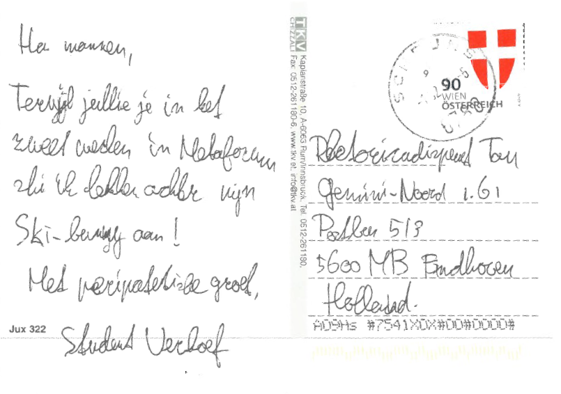 Ha mannen,
Terwijl jullie je in het
zweet werken in Metaforum
zit ik lekker achter mijn
Ski-
aan!
Met peripatetische groet,
Student Verhoef
Jux 322
TKV
Kaplanstraße 10, A-6063 Rum/Innsbruck, Tel. 0512-261180,
Fax: 0512-261180-6, www.tkv.at, info@tkv.at
90
WIEN
ÖSTERREICH
Team
Gemini-Noord 1.61
Postbus 513
5600 MB Eindhoven
Holland.